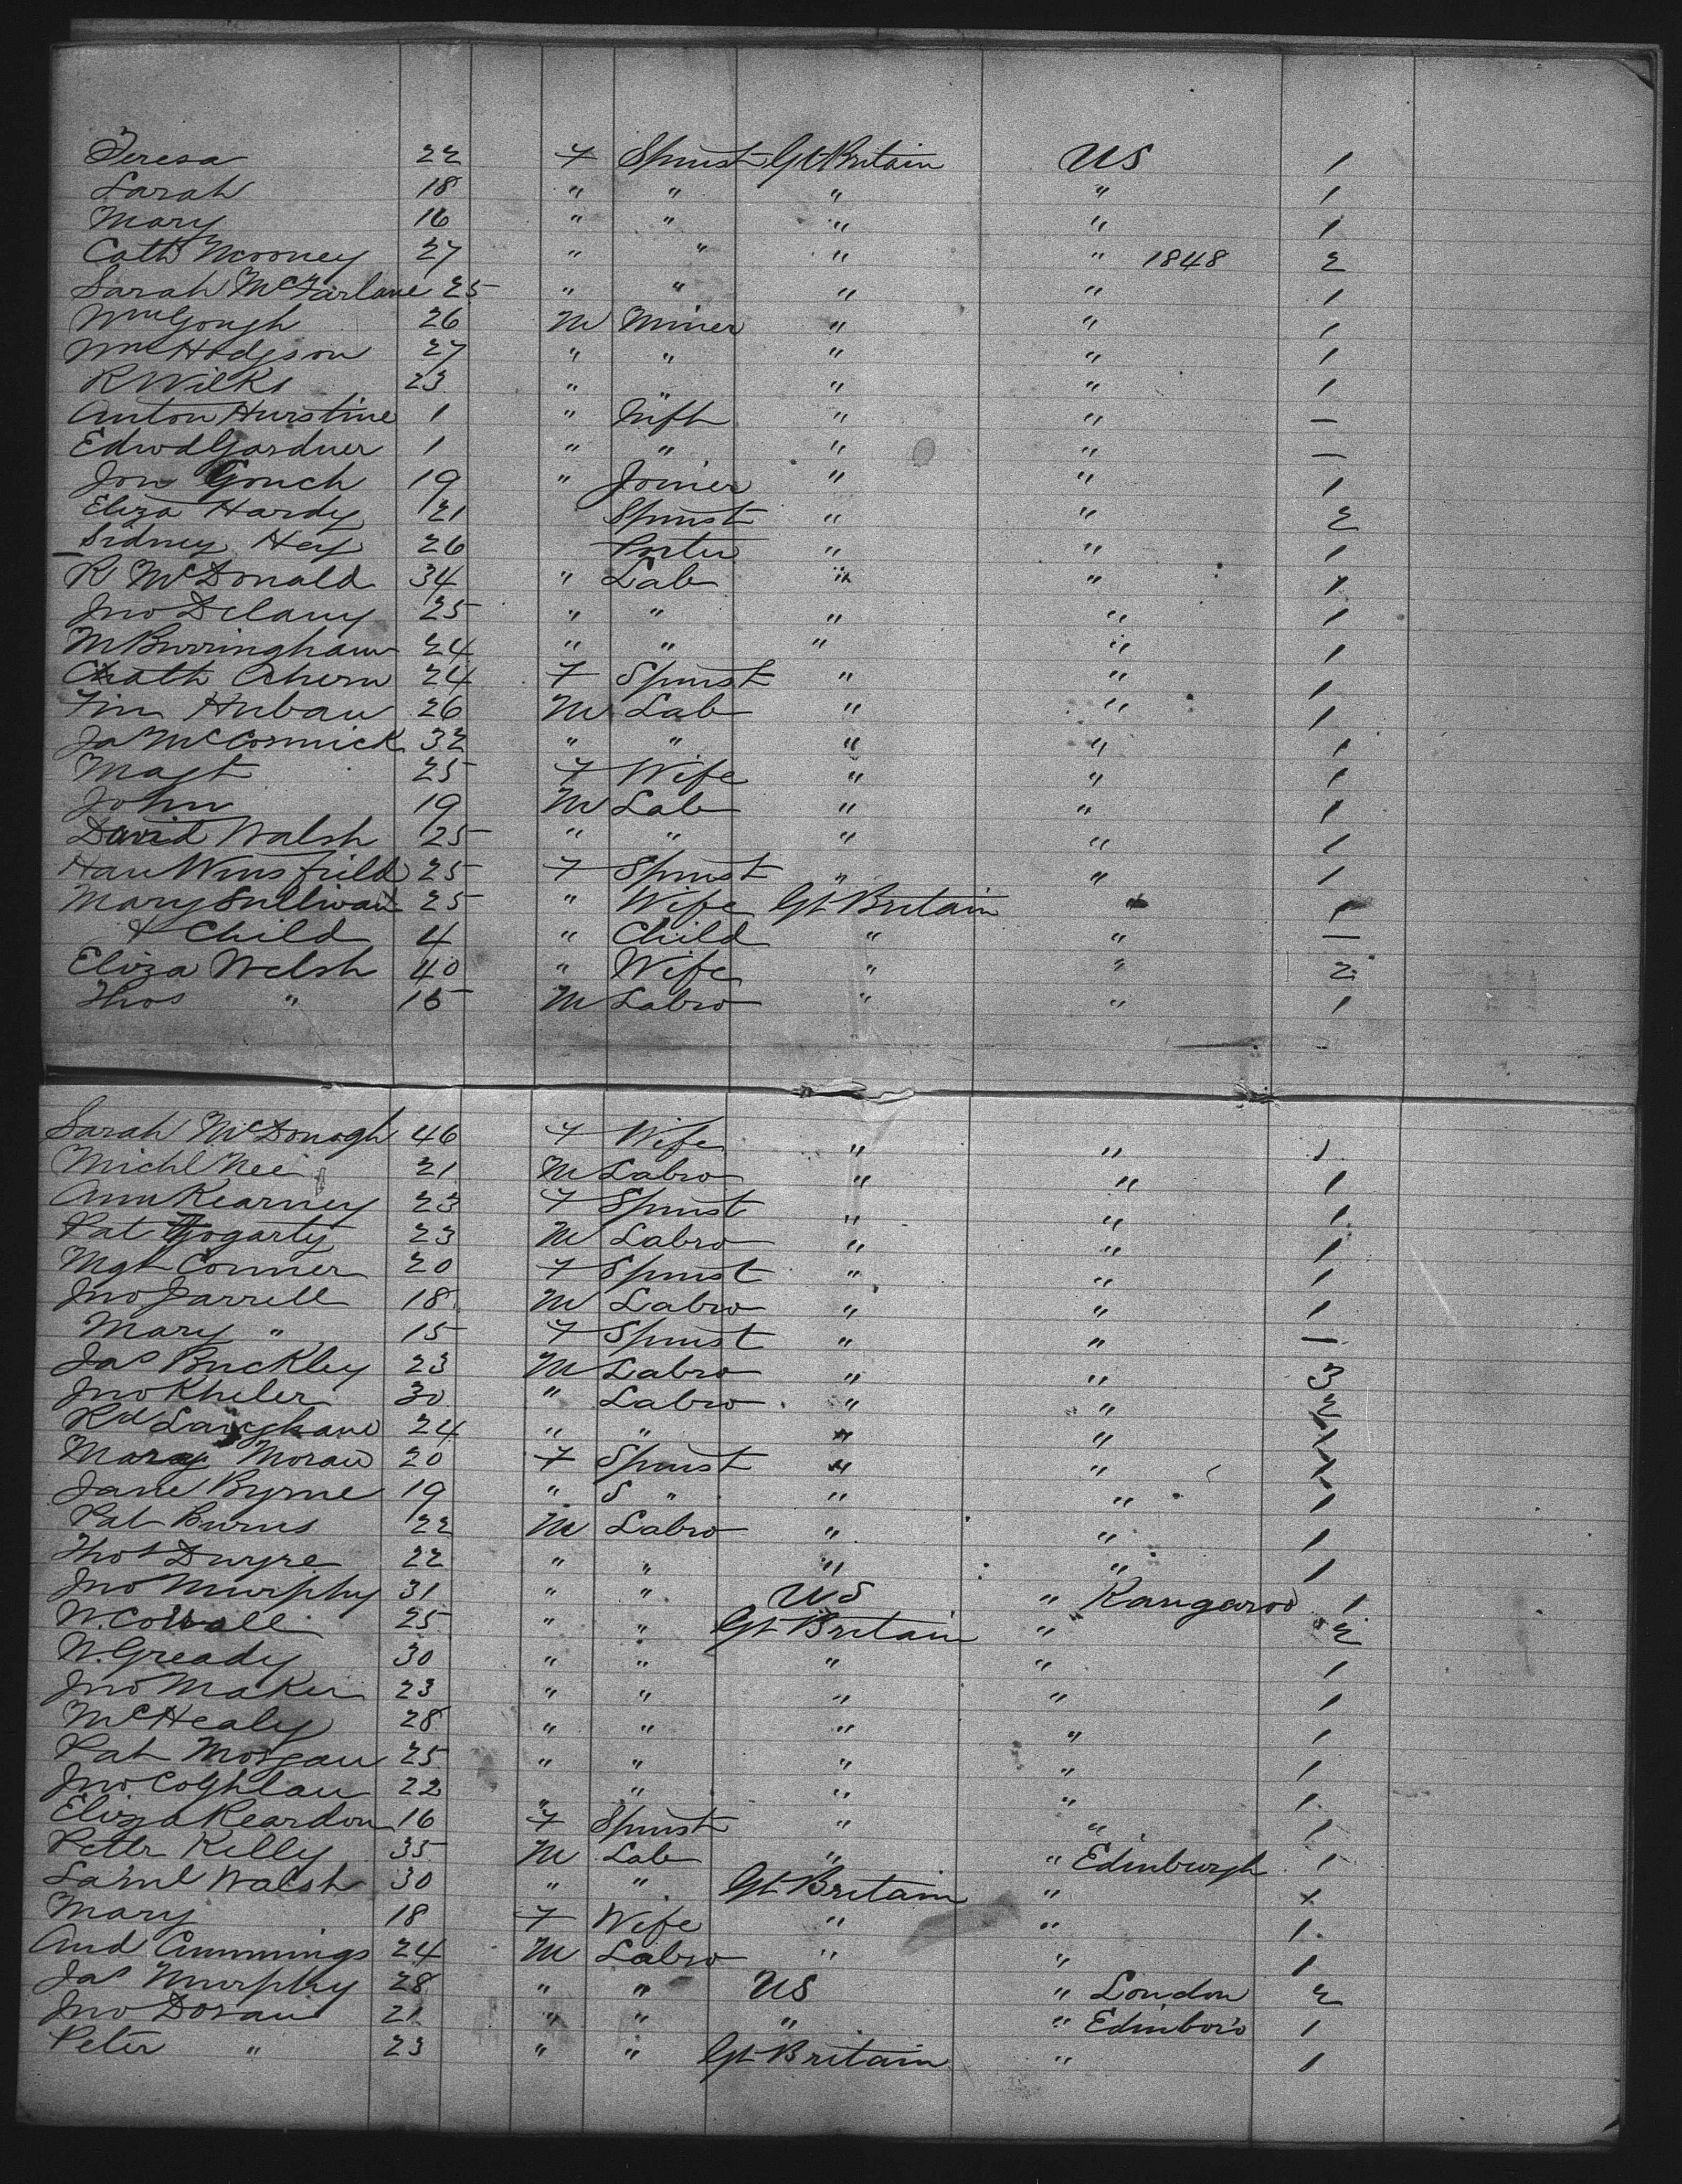 Teresa 22 F Spinst Gt Britain US 1
Sarah 18 " " " " 1
Mary 16 " " " " 1
Cath Mooney 27 " " " " 1848 2
Sarah McFarlane 25 " " " " 1
Wm Gough 26 M Miner " " 1
Wm Hodgson 27 " " " " 1
R Wilks 23 " " " " 1
Anton Hurstine 1 " Inft " " —
Edwd Gardner 1 " " " " —
Jon Gouch 19 " Joiner " " 1
Eliza Hardy 21 Spinst " " 2
Sidney Hey 26 Porter " " 1
R McDonald 34 " Lab " " 1
Jno Delany 25 " " " " 1
M Burringham 24 " " " " 1
Cath Ahern 24 F Spinst " " 1
Tim Huban 26 M Lab " " 1
Ja McCormick 32 " " " " 1
Magt 25 F Wife " " 1
John 19 M Lab " " 1
David Walsh 25 " " " " 1
Han Winsfield 25 F Spinst " " 1
Mary Sullivan 25 " Wife Gt Britain " 1
+ Child 4 " Child " " —
Eliza Welsh 40 " Wife " " 2
Thos " 15 M Labro " " 1
Sarah McDonogh 46 F Wife " " 1
Michl Nee 21 M Labro " " 1
Ann Kearney 23 F Spinst " " 1
Pat Fogarty 23 M Labro " " 1
Mgt Conner 20 F Spinst " " 1
Jno Farrell 18 M Labro " " 1
Mary " 15 F Spinst " " —
Jas Buckley 23 M Labro " " 3
Jno Kheler 30 " Labro " " 2
Rd Langhane 24 " " " " 1
Mary Moran 20 F Spinst " " 1
Jane Byrne 19 " S " " " 1
Pat Burns 22 M Labro " " 1
Thos Dwyre 22 " " " " 1
Jno Murphy 31 " " US " Kangaroo 1
W. 25 " " Gt Britain " 2
W. Gready 30 " " " " 1
Jno Maker 23 " " " " 1
McHealy 28 " " " " 1
Pat Morgan 25 " " " " 1
Jno Coghlan 22 " " " " 1
Eliza Reardon 16 F Spinst " " 1
Peter Kelly 35 M Lab " " Edinburgh 1
Saml Walsh 30 " " Gt Britain " 1
Mary 18 F Wife " " 1
And Cummings 24 M Labro " " 1
Jas Murphy 28 " " US " London 2
Jno Doran 21 " " " " Edinboro 1
Peter " 23 " " Gt Britain " 1